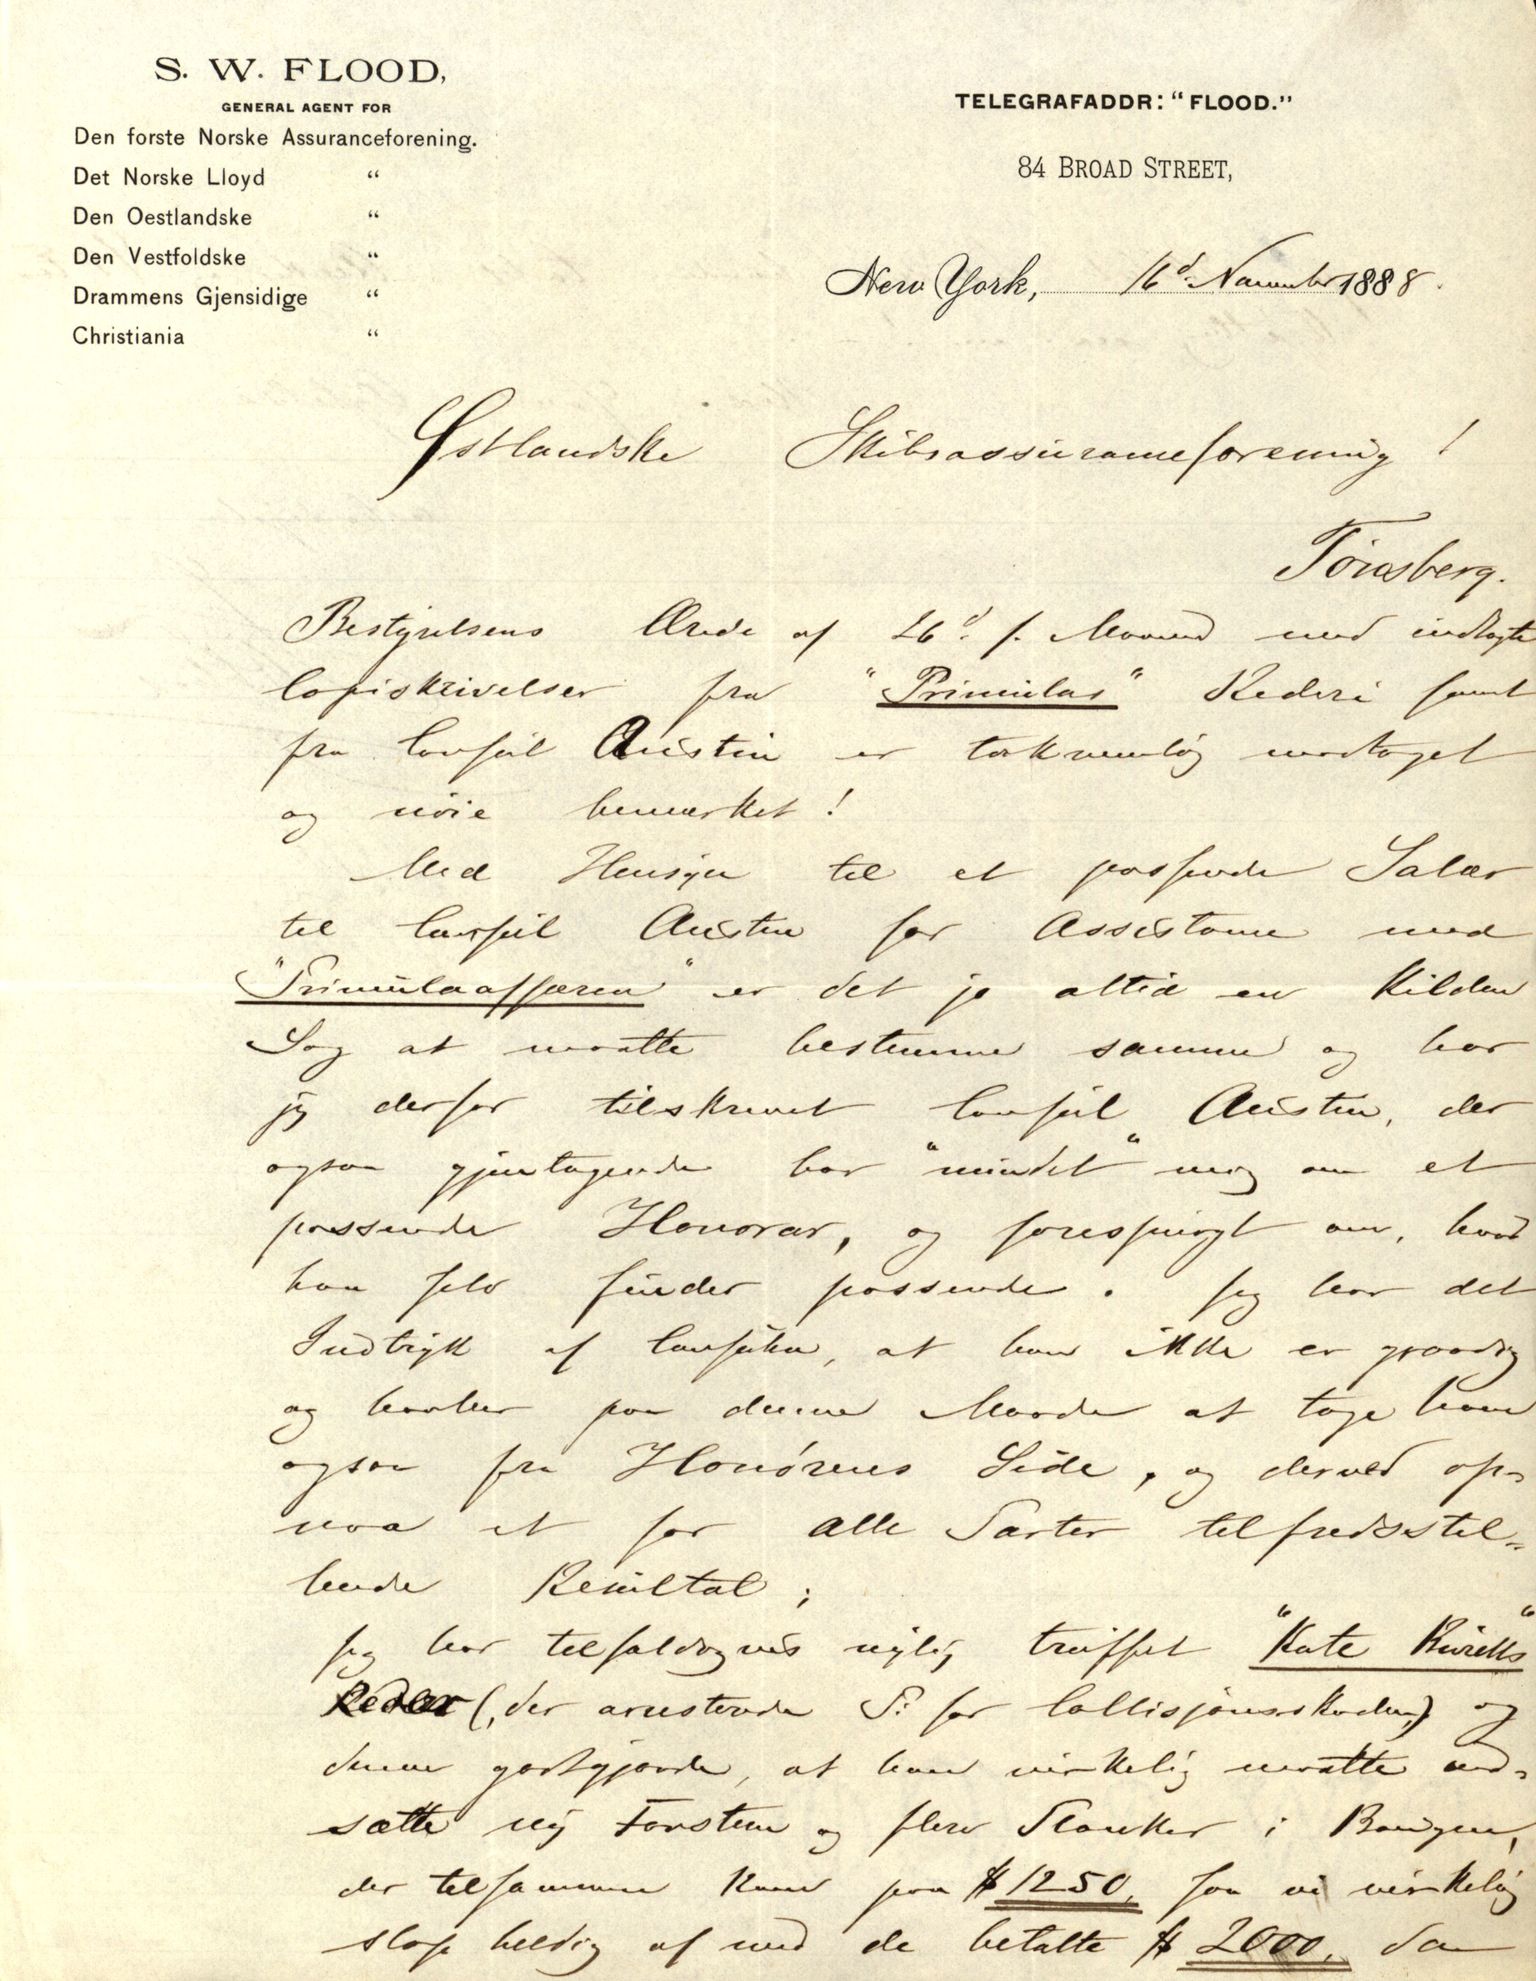 S. W. FLOOD,
GENERAL AGENT FOR
Den forste Norske Assuranceforening.
Det Norske Lloyd "
Den Oestlandske "
Den Vestfoldske "
Drammens Gjensidige "
Christiania "
TELEGRAFADDR: "FLOOD."
84 BROAD STREET,
New York, 16d November 1888.
Østlandske Skibsassuranceforening!
Tønsberg.
Bestyrelsens Ærede af 26d f. Maaned med indlagte
Copiskrivelser fra "Primulas" Rederi samt
fra Consul Austin er taknemlig modtaget
og nøie bemærket!
Med Hensyn til et passende Salær
til Consul Austin for Assistance med
"Primulaaffæren" er det jo altid en kilden
Sag at maatte bestemme samme og har
jeg derfor tilskrevet Consul Austin, der
ogsaa gjentagende har "mindet" mig om et
passende Honorar, og forespurgt om, hvad
han selv finder passende. Jeg har det
Indtryk af Consulen, at han ikke er graadig
og haaber paa denne Maade at tage ham
ogsaa fra Honørens Side, og derved op-
naa et for alle Parter tilfredsstil-
lende Resultat;
Jeg har tilfældigvis nylig truffet "Kate
Reder (, der arresterede P. for Collisjonsskaden,) og
denne godtgjorde, at han virkelig maatte ind-
sætte ny Forstem og flere Planker i Bougen,
der tilsammen kom paa $ 1250, saa vi virkelig
slap heldig af med de betalte $ 2000, da